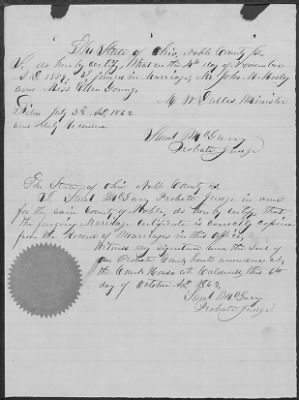 The State of Ohio, Noble County ss
I, do hereby certify that on the 4th day of November
A.D. 1857, I joined in Marriage Mr John M. Mosby
and Miss Ellen Young.
M. W. Dallas Minister
Filed July 3rd A.D. 1862
and duly
Saml McGarry
Probate Judge
The State of Ohio Noble County ss
I Saml McGary Probate Judge in and
for the said County of Noble, do hereby certify that
the forgoing Marriage Certificate is correctly copied
from the Record of Marriages in this office
Witness my signature and the Seal of
our Probate Court hereto annexed at
the Court House at Caldwell this 6th
day of October A.D. 1862
Saml McGary
Probate Judge